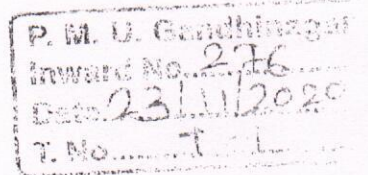 P. M. U. Gandhinagar
Inward No. 276
Date. 23/11/2020
T. No.